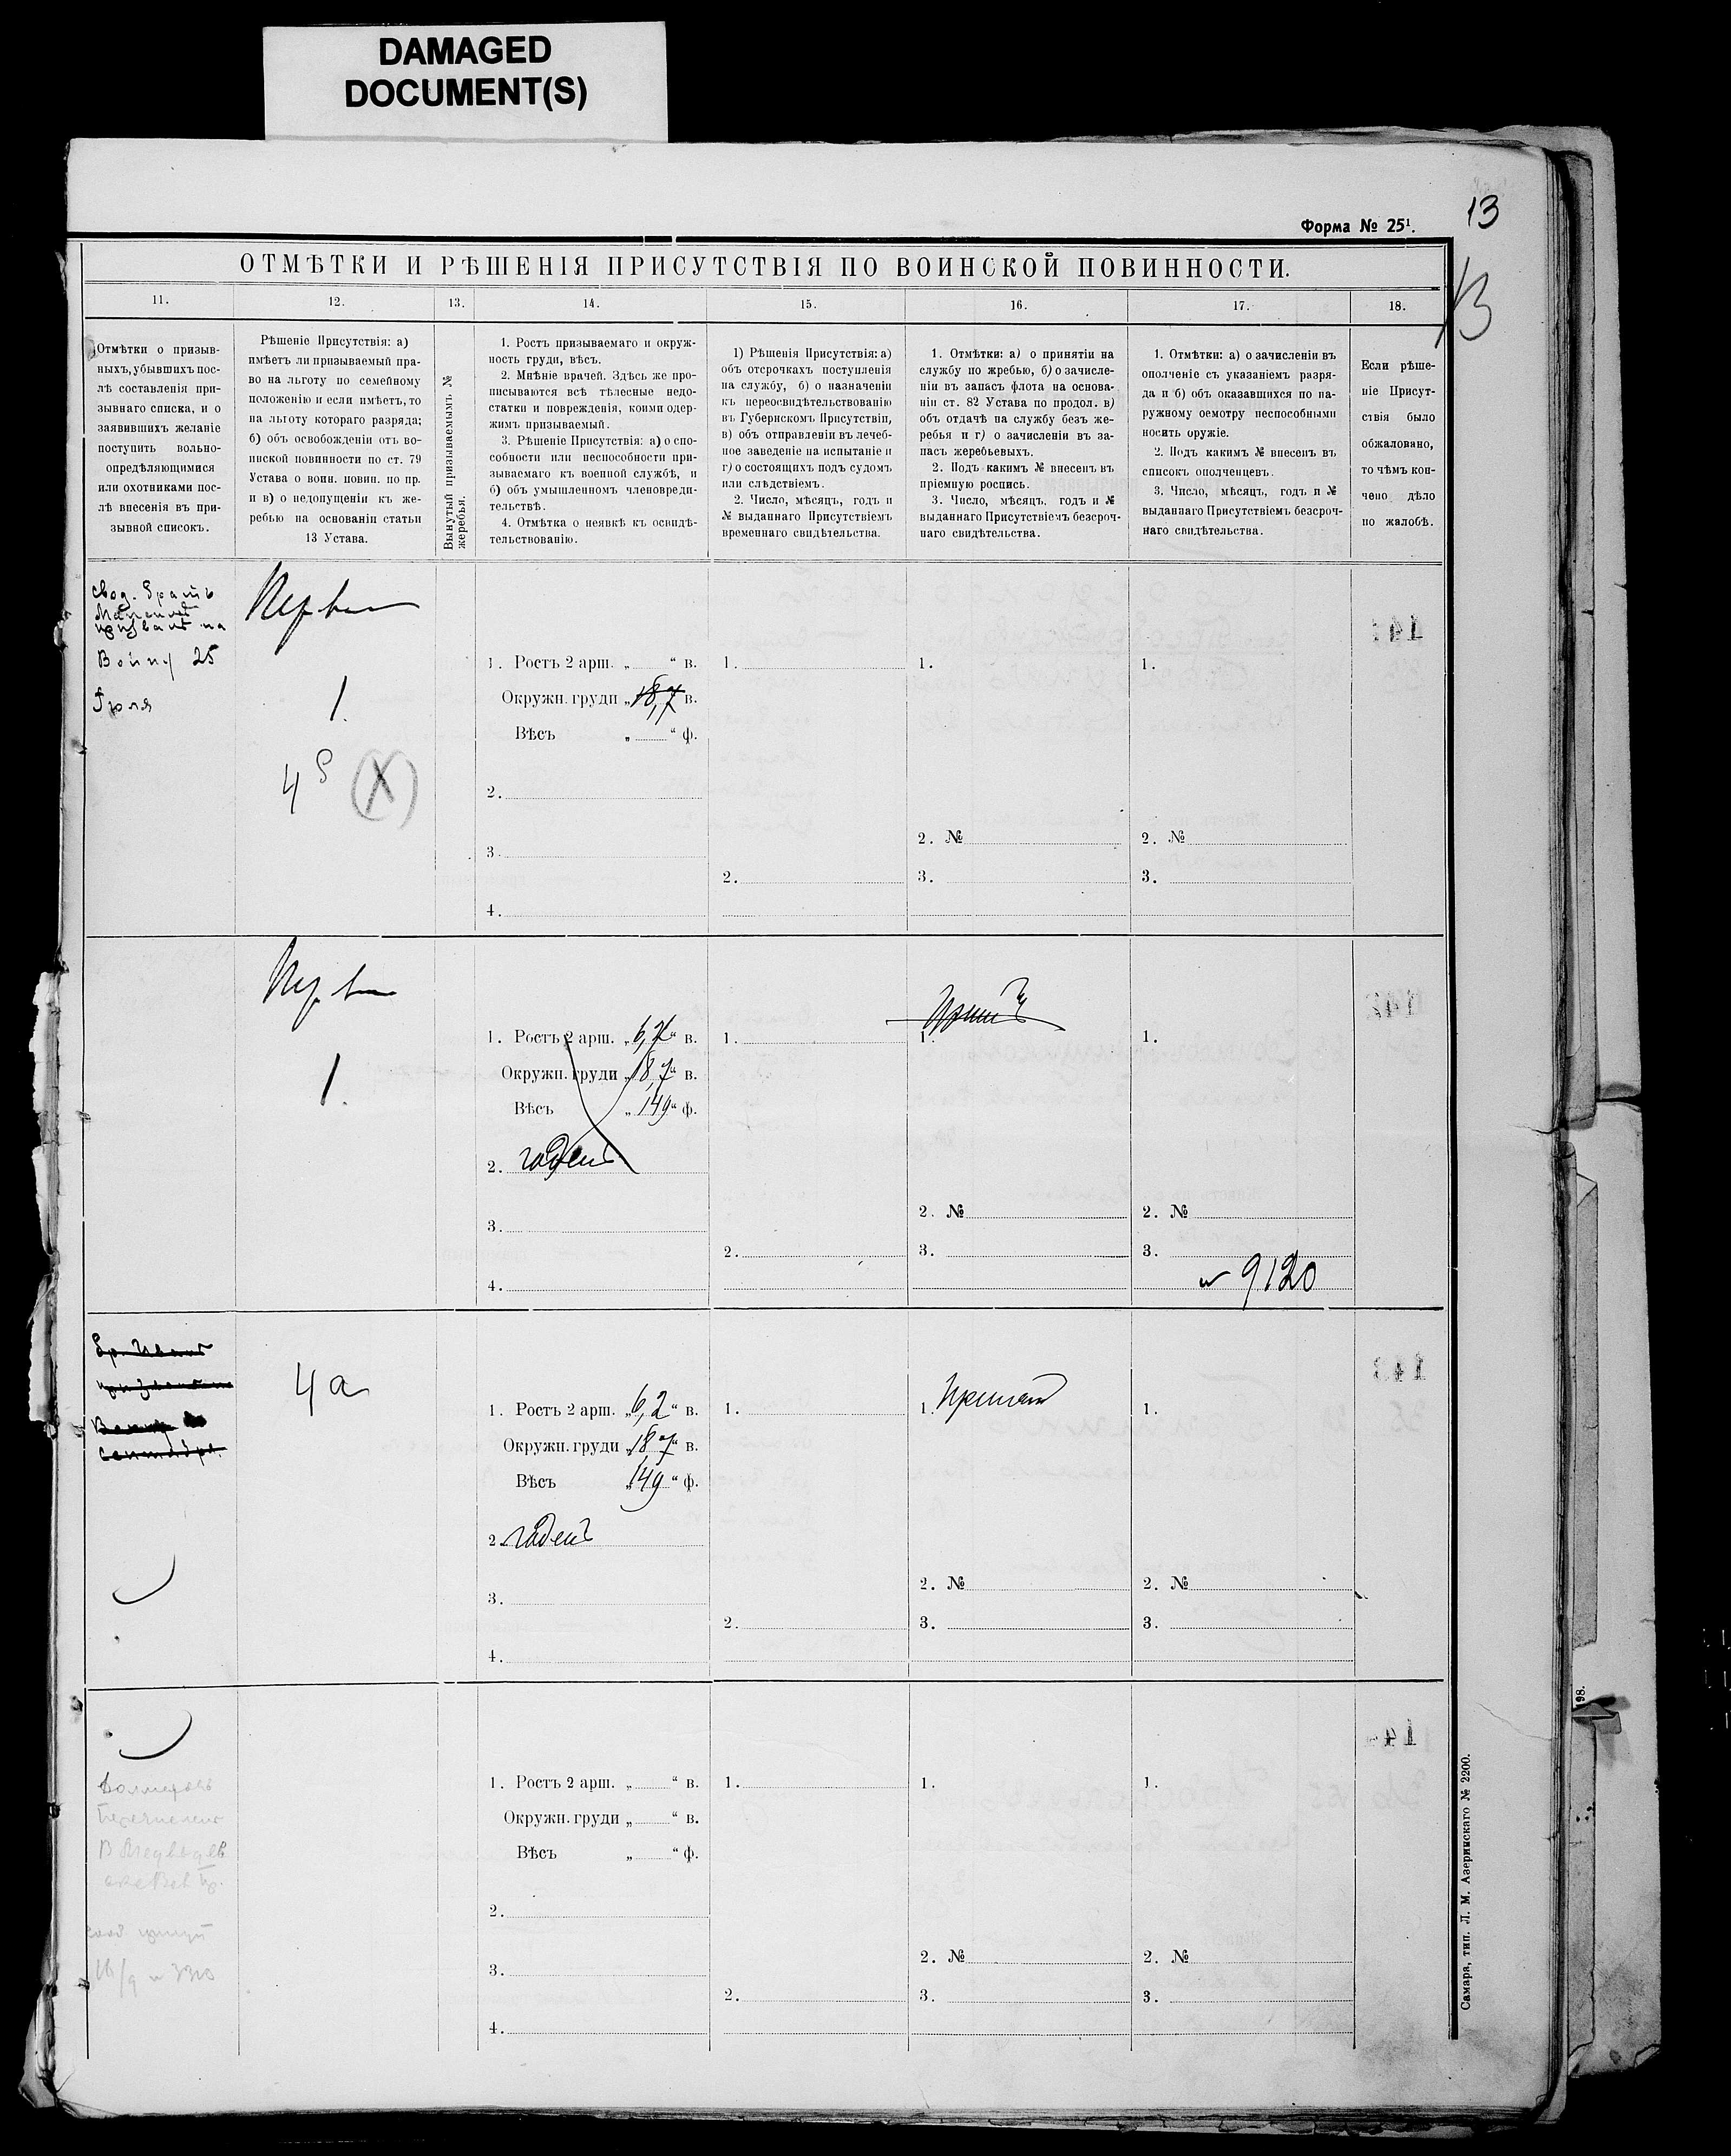 DAMAGED
DOCUMENT(S)
13
Форма № 25¹.
13
ОТМѢТКИ И РѢШЕНІЯ ПРИСУТСТВІЯ ПО ВОИНСКОЙ ПОВИННОСТИ.
11. 12. 13. 14. 15. 16. 17. 18.
Отмѣтки о призыв-
ныхъ, убывшихъ пос-
лѣ составленія при-
зывнаго списка, и о
заявившихъ желаніе
поступить вольно-
опредѣляющимися
или охотниками пос-
лѣ внесенія въ при-
зывной списокъ.
Рѣшеніе Присутствія: а)
имѣетъ ли призываемый пра-
во на льготу по семейному
положенію и если имѣетъ, то
на льготу котораго разряда;
б) объ освобожденіи отъ во-
инской повинности по ст. 79
Устава о воин. повин. по пр.
и в) о недопущеніи къ же-
ребью на основаніи статьи
13 Устава.
Вынутый призываемымъ №
жеребья.
1. Ростъ призываемаго и окруж-
ность груди, вѣсъ.
2. Мнѣніе врачей. Здѣсь же про-
писываются всѣ тѣлесные недо-
статки и поврежденія, коими одер-
жимъ призываемый.
3. Рѣшеніе Присутствія: а) о спо-
собности или неспособности при-
зываемаго къ военной службѣ, и
б) объ умышленномъ членовреди-
тельствѣ.
4. Отмѣтка о неявкѣ къ освидѣ-
тельствованію.
1) Рѣшенія Присутствія: а)
объ отсрочкахъ поступленія
на службу, б) о назначеніи
къ переосвидѣтельствованію
въ Губернскомъ Присутствіи,
в) объ отправленіи въ лечеб-
ное заведеніе на испытаніе и
г) о состоящихъ подъ судомъ
или слѣдствіемъ.
2. Число, мѣсяцъ, годъ и
№ выданнаго Присутствіемъ
временнаго свидѣтельства.
1. Отмѣтки: а) о принятіи на
службу по жребью, б) о зачисле-
ніи въ запасъ флота на основа-
ніи ст. 82 Устава по продол. в)
объ отдачѣ на службу безъ же-
ребья и г) о зачисленіи въ за-
пасъ жеребьевыхъ.
2. Подъ какимъ № внесенъ въ
пріемную роспись.
3. Число, мѣсяцъ, годъ и №
выданнаго Присутствіемъ безсроч-
наго свидѣтельства.
1. Отмѣтки: а) о зачисленіи въ
ополченіе съ указаніемъ разря-
да и б) объ оказавшихся по на-
ружному осмотру неспособными
носить оружіе.
2. Подъ какимъ № внесенъ въ
списокъ ополченцевъ.
3. Число, мѣсяцъ, годъ и №
выданнаго Присутствіемъ безсроч-
наго свидѣтельства.
Если рѣше-
ніе Присут-
ствія было
обжаловано,
то чѣмъ кон-
чено дѣло
по жалобѣ.
свод. братъ
призванъ на
Войну 25
Іюля
1.
4 б (X)
1. Ростъ 2 арш. „ “ в.
Окружн. груди „18,7 в.
Вѣсъ „ “ ф.
2.
3.
4.
1.
2.
1.
2. №
3.
1.
2. №
3.
1.
1. Ростъ 2 арш. „6,2“ в.
Окружн. груди „18,7“ в.
Вѣсъ „149“ ф.
2. годенъ
3.
4.
1.
2.
1. Принятъ
2. №
3.
1.
2. №
3.
№ 9120
Бр. Иванъ
призванъ на
Войну
Сентября.
4 а
1. Ростъ 2 арш. „6,2“ в.
Окружн. груди „18,7“ в.
Вѣсъ „149“ ф.
2. годенъ
3.
4.
1.
2.
1. Принятъ
2. №
3.
1.
2. №
3.
1. Ростъ 2 арш. „ “ в.
Окружн. груди „ “ в.
Вѣсъ „ “ ф.
2.
3.
4.
1.
2.
1.
2. №
3.
1.
2. №
3.
Самара, тип. Л. М. Азеринскаго № 2200.
198.